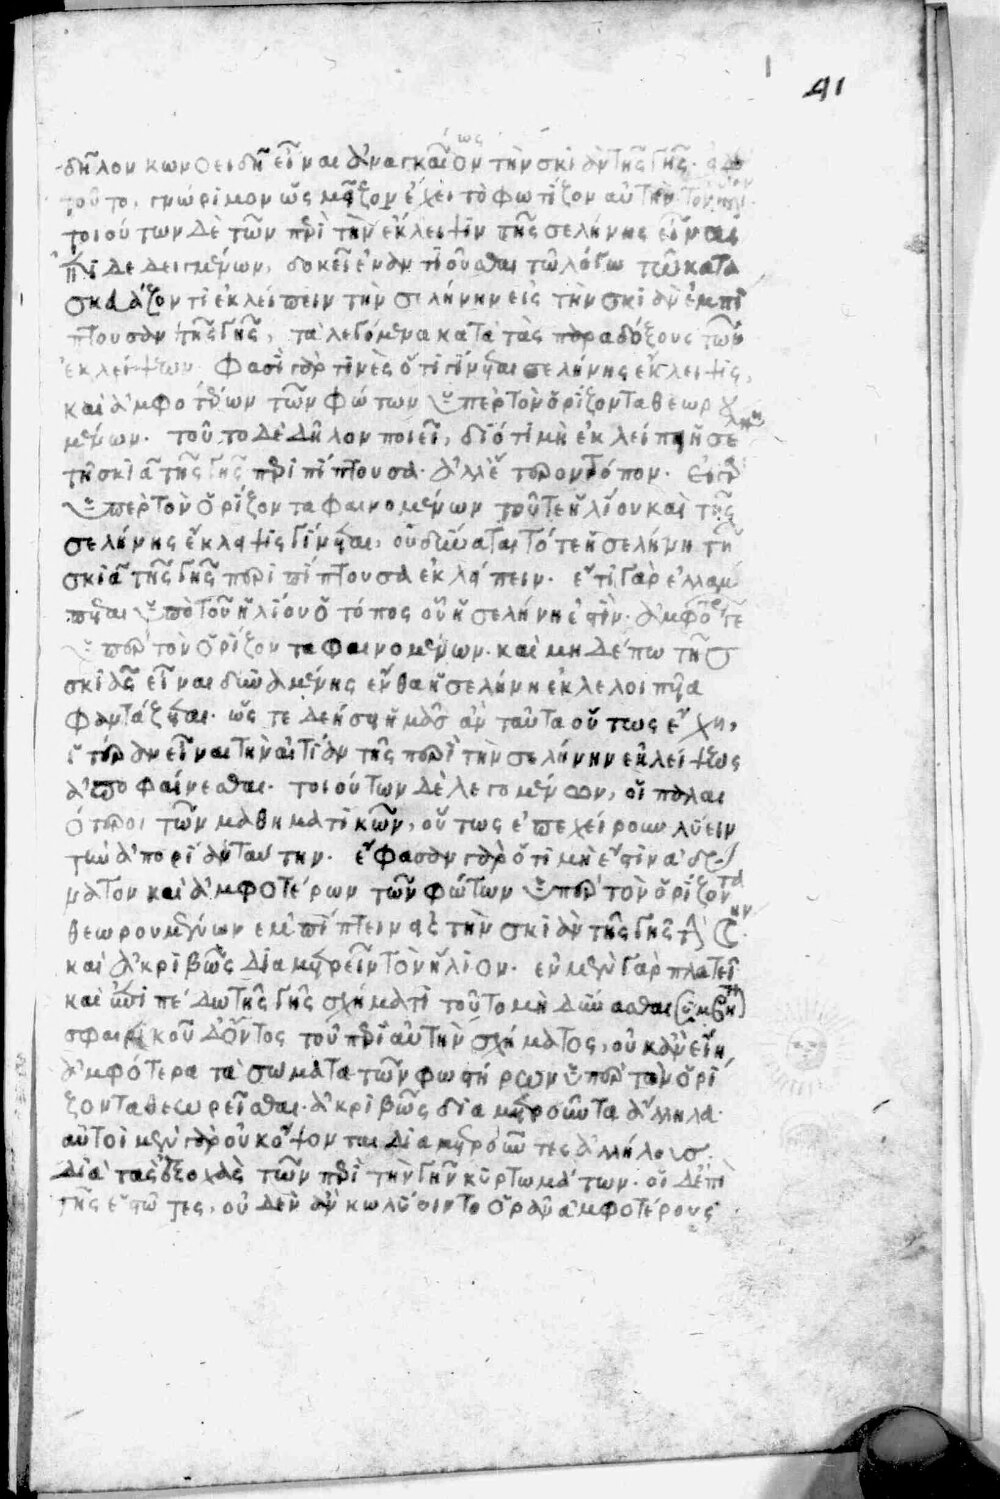 41
δῆλον κωνοειδῆ εἶναι ἀναγκαῖον τὴν σκιὰν τῆς γῆς.
τοῦτο, γνώριμον ὡς μεῖζον ἔχει τὸ φωτίζον αὐτὴν
τοιούτων δὲ τῶν περὶ τὴν ἔκλειψιν τῆς σελήνης εἶναι
ἐπιδεδειγμένων, δοκεῖ ἐναντιοῦσθαι τῶ λόγω τῶ κατα
σκευάζοντι ἐκλείπειν τὴν σελήνην εἰς τὴν σκιὰν ἐμπί
πτουσαν τῆς γῆς, τὰ λεγόμενα κατὰ τὰς παραδόξους τῶν
ἐκλείψεων. φασὶ γάρ τινὲς ὅτι γίνεται σελήνης ἔκλειψις,
καὶ ἀμφοτέρων τῶν φώτων ὑπὲρ τὸν ὁρίζοντα θεωρου
μένων. τοῦτο δὲ δῆλον ποιεῖ, διότι μὴ ἐκλείπει ἡ σε
τῆ σκιᾶ τῆς γῆς περιπίπτουσα. ἀλλ' ἕτερον τρόπον.
ὑπὲρ τὸν ὁρίζοντα φαινομένων τοῦ τε ἡλίου καὶ τῆς
σελήνης ἔκλειψις γίνεται, οὐ δύναται τότε ἡ σελήνη τῆ
σκιᾶ τῆς γῆς περιπίπτουσα ἐκλείπειν. ἔτι γὰρ ἐλλάμ
πεται ὑπὸ τοῦ ἡλίου ὁ τόπος οὗ ἡ σελήνη ἐστὶν.
ὑπὲρ τὸν ὁρίζοντα φαινομένων. καὶ μηδέπω τῆς
σκιᾶς εἶναι δυναμένης ἔνθα ἡ σελήνη ἐκλελοιπυῖα
φαντάζεται. ὥστε δεήσει ἡμᾶς ἂν ταῦτα οὕτως ἔχη,
ἑτέραν εἶναι τὴν αἰτίαν τῆς περὶ τὴν σελήνην ἐκλείψεως
ἀποφαίνεσθαι. τοιούτων δὲ λεγομένων, οἱ παλαι
ότεροι τῶν μαθηματικῶν, οὕτως ἐπεχείρουν λύειν
τὴν ἀπορίαν ταύτην. ἔφασαν γὰρ ὅτι μὴ ἔστιν ἀδύ
νατον καὶ ἀμφοτέρων τῶν φώτων ὑπὲρ τὸν ὁρίζοντα
θεωρουμένων ἐμπίπτειν εἰς τὴν σκιὰν τῆς γῆς
καὶ ἀκριβῶς διαμετρεῖν τὸν ἥλιον. ἐν μὲν γὰρ πλατεῖ
καὶ ἐπιπέδω τῆς γῆς σχήματι τοῦτο μὴ δύνασθαι
σφαιρικοῦ δ' ὄντος τοῦ περὶ αὐτὴν σχήματος, οὐκ ἂν εἴη,
ἀμφότερα τὰ σώματα τῶν φωστήρων ὑπὲρ τὸν ὁρί
ζοντα θεωρεῖσθαι. ἀκριβῶς διαμετροῦντα ἄλληλα.
αὐτοὶ μὲν γὰρ οὐκ ὄψονται διαμετροῦντες ἀλλήλους.
διὰ τὰς ἐξοχὰς τῶν περὶ τὴν γῆν κυρτωμάτων. οἱ δ' ἐπὶ
γῆς ἑστῶτες, οὐδὲν ἂν κωλύοιντο ὁρᾶν ἀμφοτέρους